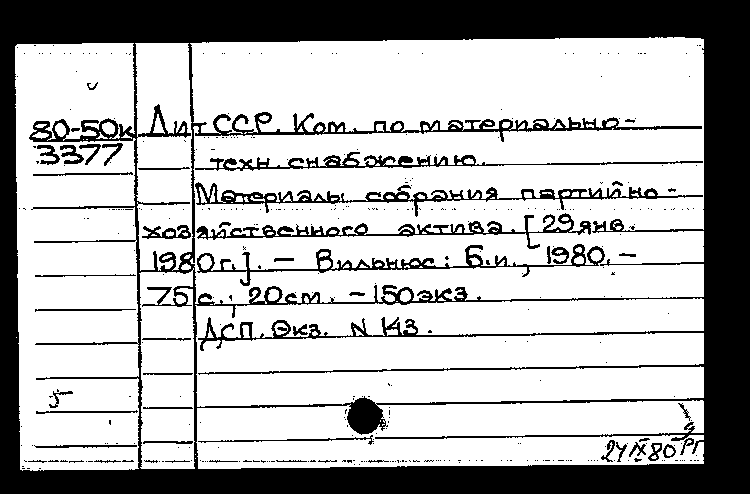 80-50к ЛитССР. Ком. по материально-
3377 техн. снабжению.
Материалы собрания партийно-
хозяйственного актива. [29 янв.
1980 г.]. — Вильнюс: Б.и., 1980. —
75 с.; 20 см. — 150 экз.
ДСП. Экз. N 143.
5
24 IX 80